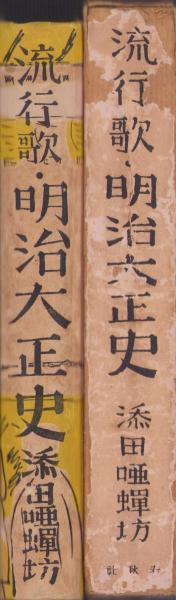 流行歌・明治大正史
添田唖蟬坊
流行歌・明治大正史
添田唖蟬坊
春秋社